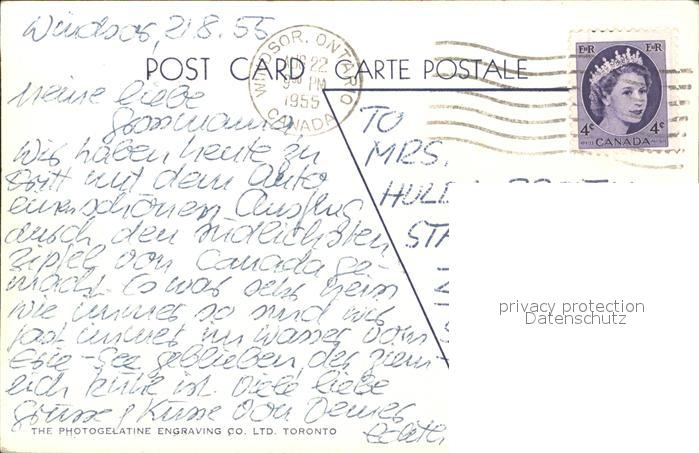 Windsor, 21.8.55
POST CARD CARTE POSTALE
WINDSOR, ONTARIO
22
PM
1955
CANADA
E R E R
4¢ 4¢
CANADA
Meine liebe
Grossmama,
Wir haben heute zu
dritt mit dem Auto
einen schönen Ausflug
durch den südlichsten
Zipfel von Canada ge-
macht. Es war sehr heiss
wie immer so sind wir
fast immer im Wasser vom
Erie-See geblieben, der ziem-
lich kühl ist. Viele liebe
Grüsse & Küsse von Deiner
TO
MRS.
privacy protection
Datenschutz
THE PHOTOGELATINE ENGRAVING CO. LTD. TORONTO